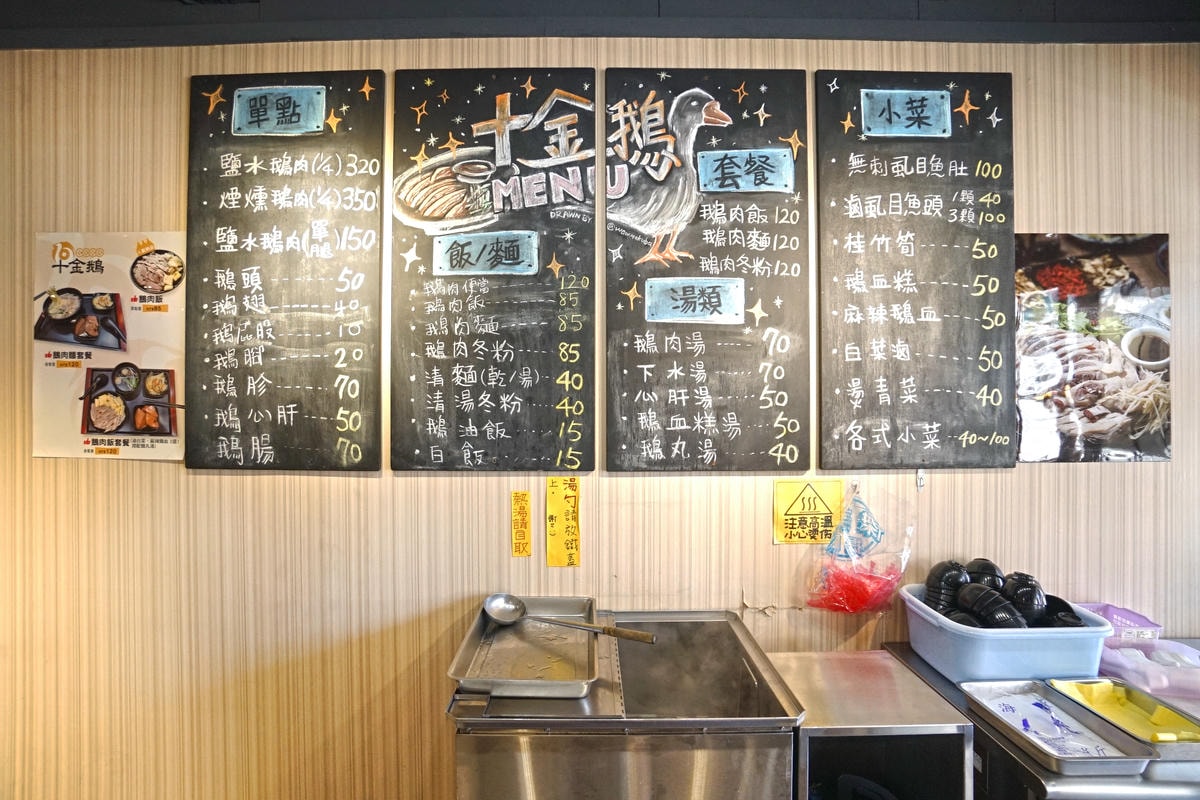 單點
鹽水鵝肉(¼) 320
煙燻鵝肉(¼) 350
鹽水鵝肉(單腿) 150
鵝頭 50
鵝翅 40
鵝屁股 10
鵝腳 20
鵝胗 70
鵝心肝 50
鵝腸 70
十金鵝
MENU
DRAWN BY
飯/麵
鵝肉便當 120
鵝肉飯 85
鵝肉麵 85
鵝肉冬粉 85
清麵(乾/湯) 40
清湯冬粉 40
鵝油飯 15
白飯 15
套餐
鵝肉飯 120
鵝肉麵 120
鵝肉冬粉 120
湯類
鵝肉湯 70
下水湯 70
心肝湯 50
鵝血糕湯 50
鵝丸湯 40
小菜
無刺虱目魚肚 100
滷虱目魚頭 1顆 40
3顆 100
桂竹筍 50
鵝血糕 50
麻辣鵝血 50
白菜滷 50
燙青菜 40
各式小菜 40~100
十金鵝
鵝肉飯
鵝肉麵套餐
NT$120
鵝肉飯套餐
NT$120
熱湯請自取
湯勺請放鐵蓋
上。
注意高溫
小心燙傷